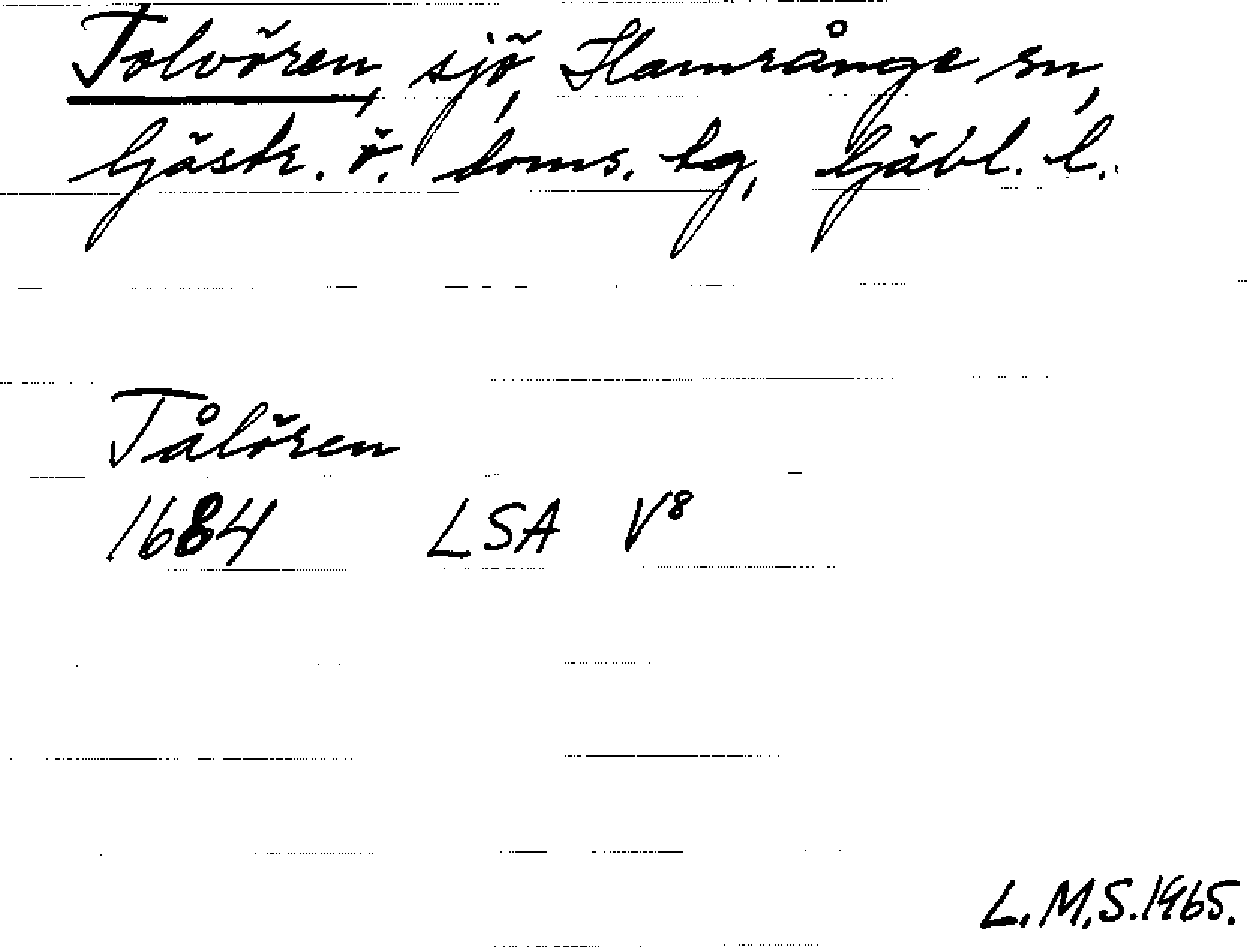 Tolvören, sjö, Hamrånge sn,
Gästr. ö. doms. tg, Gävl. l.
Tålören
1684 LSA V8
L.M.S. 1965.